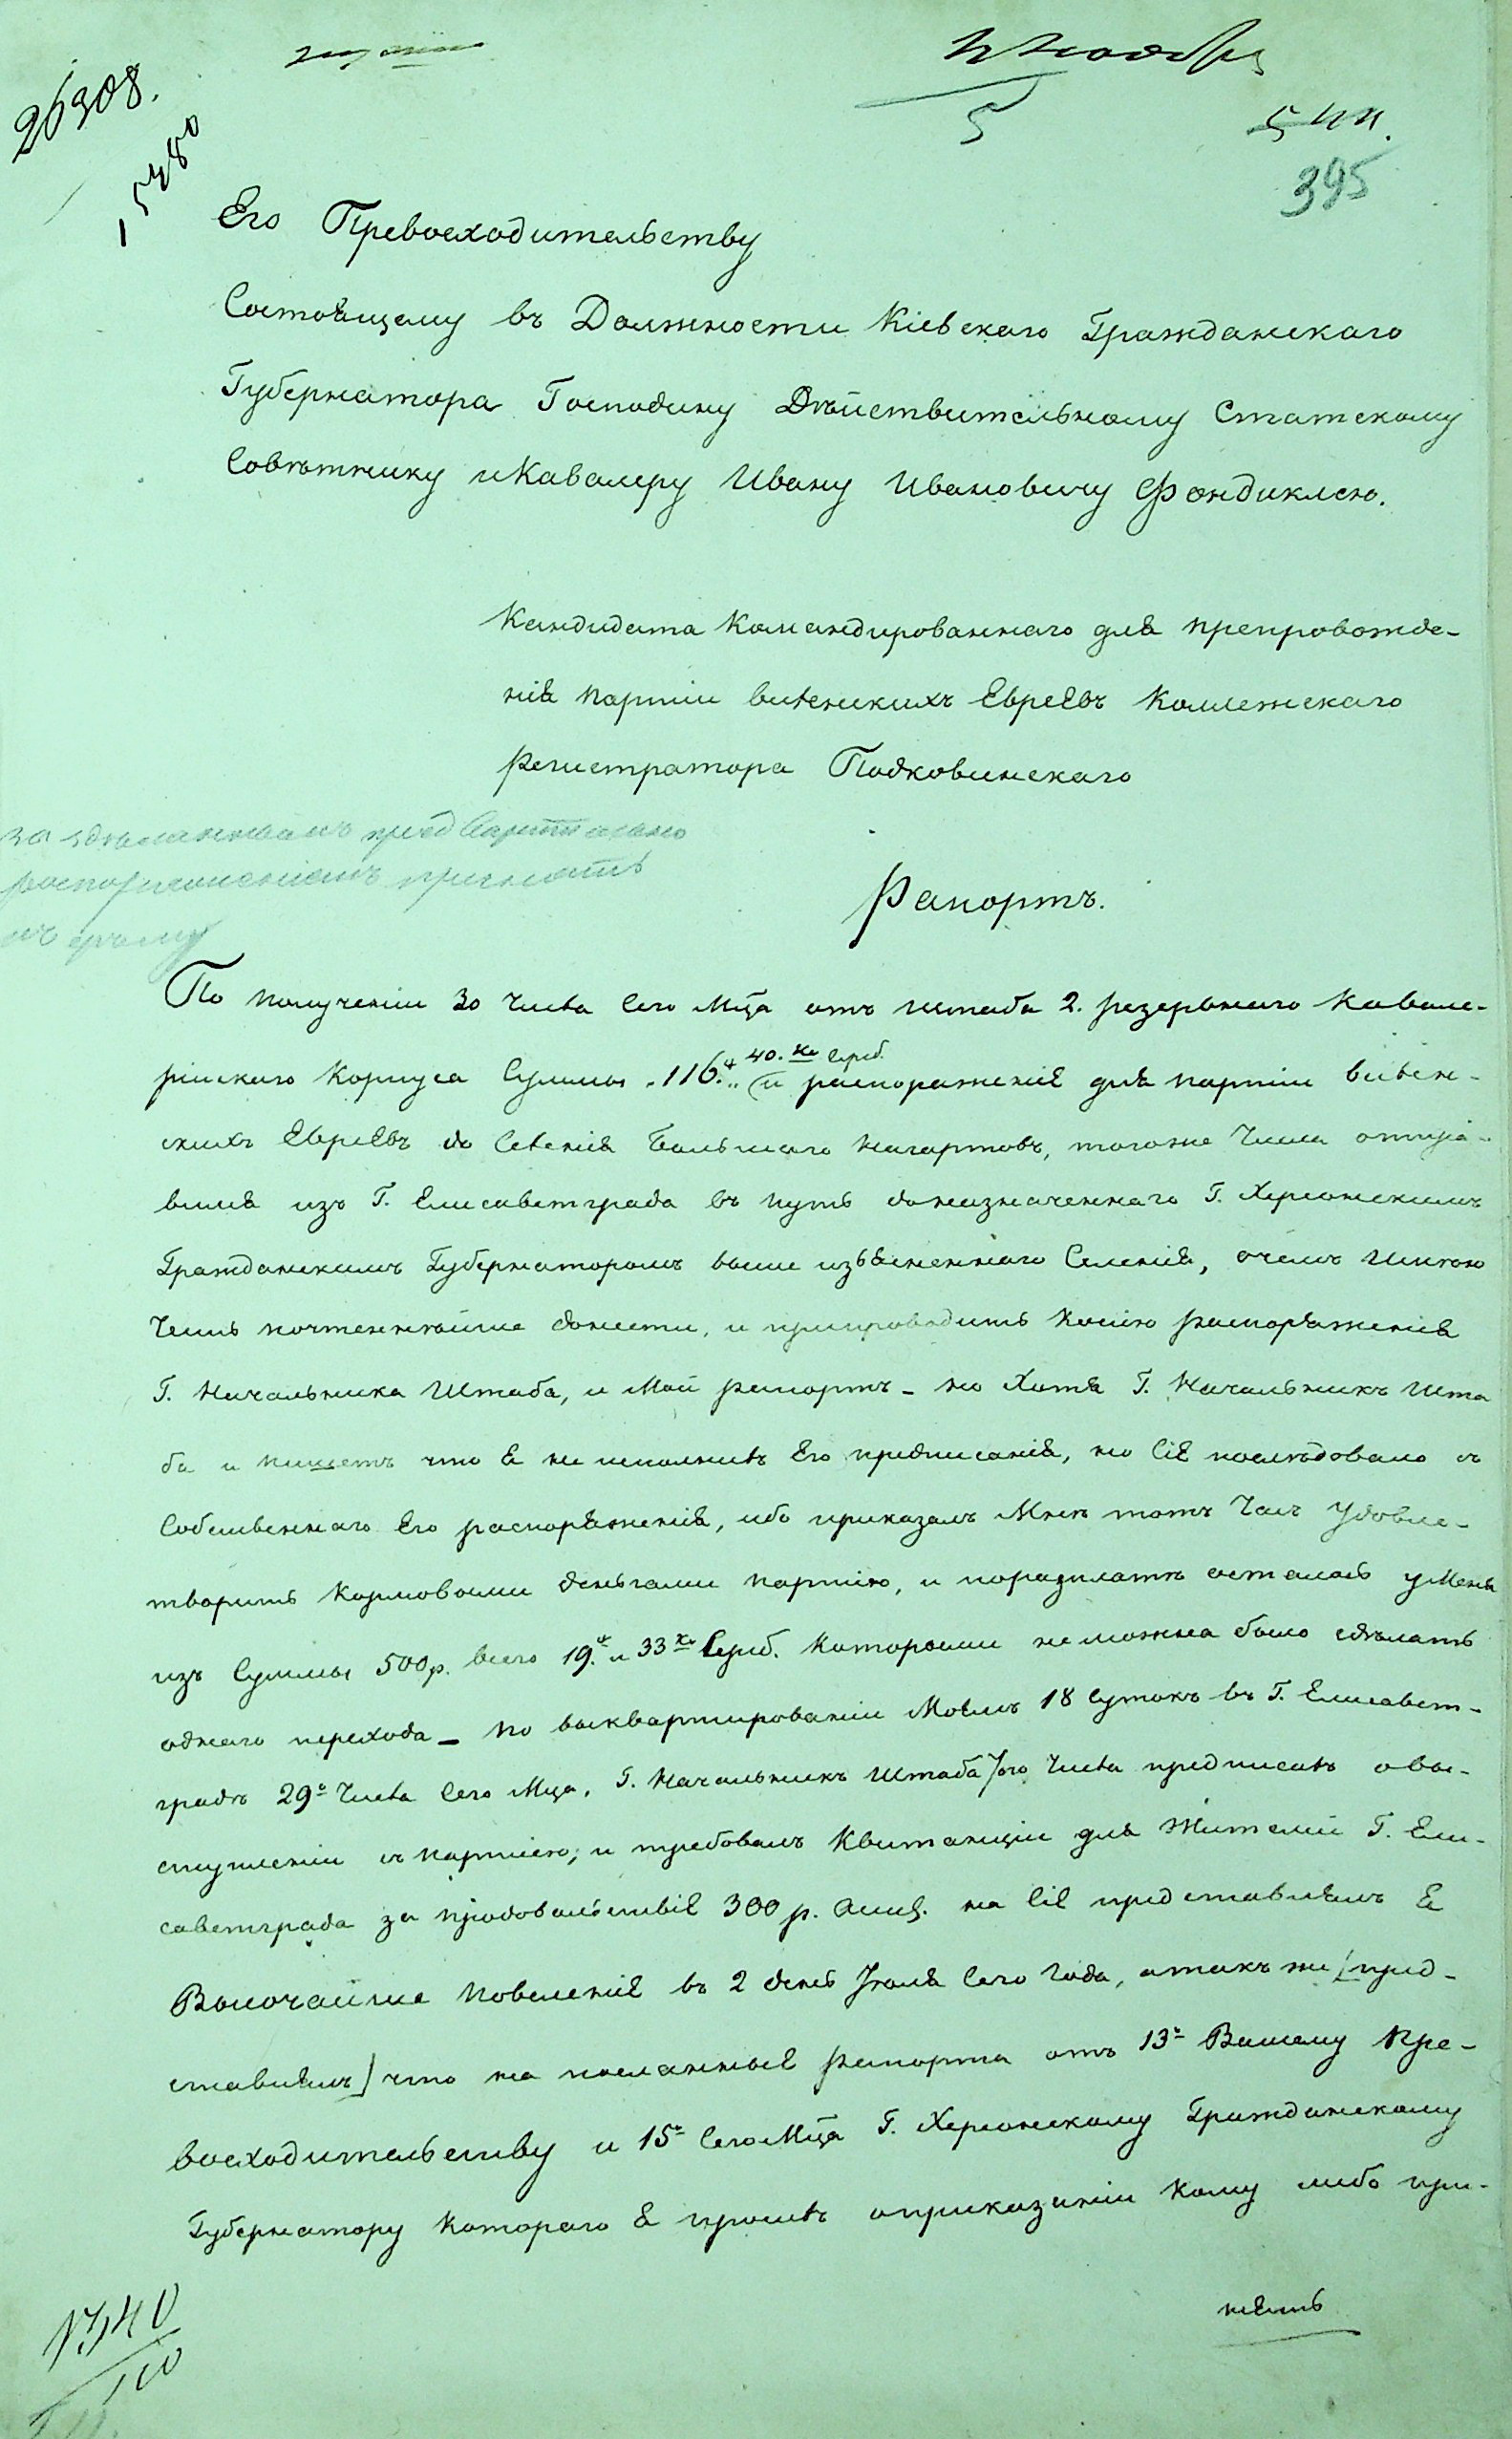 26308.
15780
5
395
Его Превосходительству
Состоящему въ Должности Кіевскаго Гражданскаго
Губернатора Господину Дѣйствительному Статскому
Совѣтнику и Кавалеру Ивану Ивановичу Фондиклею.
Кандидата Командированнаго для препровожде-
нія партіи виленскихъ Евреевъ Коллежскаго
Регистратора Подковинскаго
за сдѣланнымъ
распоряженіемъ
къ дѣлу
Рапортъ.
По полученіи 30 числа сего Мца отъ штаба 2. резервнаго Кавале-
рійскаго Корпуса Суммы 116. 40. к. сереб. и распораженіе для партіи вилен-
скихъ Евреевъ до Селенія Большаго Нагартовъ, тогоже Числа отпра-
вился изъ Г. Елисаветграда въ путь до назначеннаго Г. Херсонскимъ
Гражданскимъ Губернаторомъ выше изъясненнаго Селенія, о чемъ Имѣю
Честь почтеннѣйше донести, и препроводить Копію распоряженія
Г. Начальника Штаба, и Мой рапортъ - но Хотя Г. Начальникъ Шта
ба и пишетъ что я не исполнилъ Его предписанія, но Сіе послѣдовало съ
Собственнаго Его распоряженія, ибо приказалъ Мнѣ тотъ Часъ Удовле-
творить Кормовыми деньгами партію, и по разплатѣ осталось у Меня
изъ Суммы 500 р. всего 19. и 33 к. Сереб. Которыми неможна было сдѣлать
однаго перехода - По выквартированіи Моемъ 18 Сутокъ въ Г. Елисавет-
градѣ 29о Числа Сего Мца, Г. Начальникъ Штаба Числа предписалъ о вы-
ступленіи съ партіею, и требовалъ Квитанціи для Жителей Г. Ели-
саветграда за продовольствіе 300 р. Асиг. на Сіе представлялъ я
Высочайше Повеленіе въ 2 день Іюля Сего Года, атакъ же [пред-
ставлялъ] что на посланные рапорта отъ 13о Вашему Пре-
восходительству и 15о Сего Мца Г. Херсонскому Гражданскому
Губернатору Котораго я просилъ о приказаніи Кому либо при-
нять